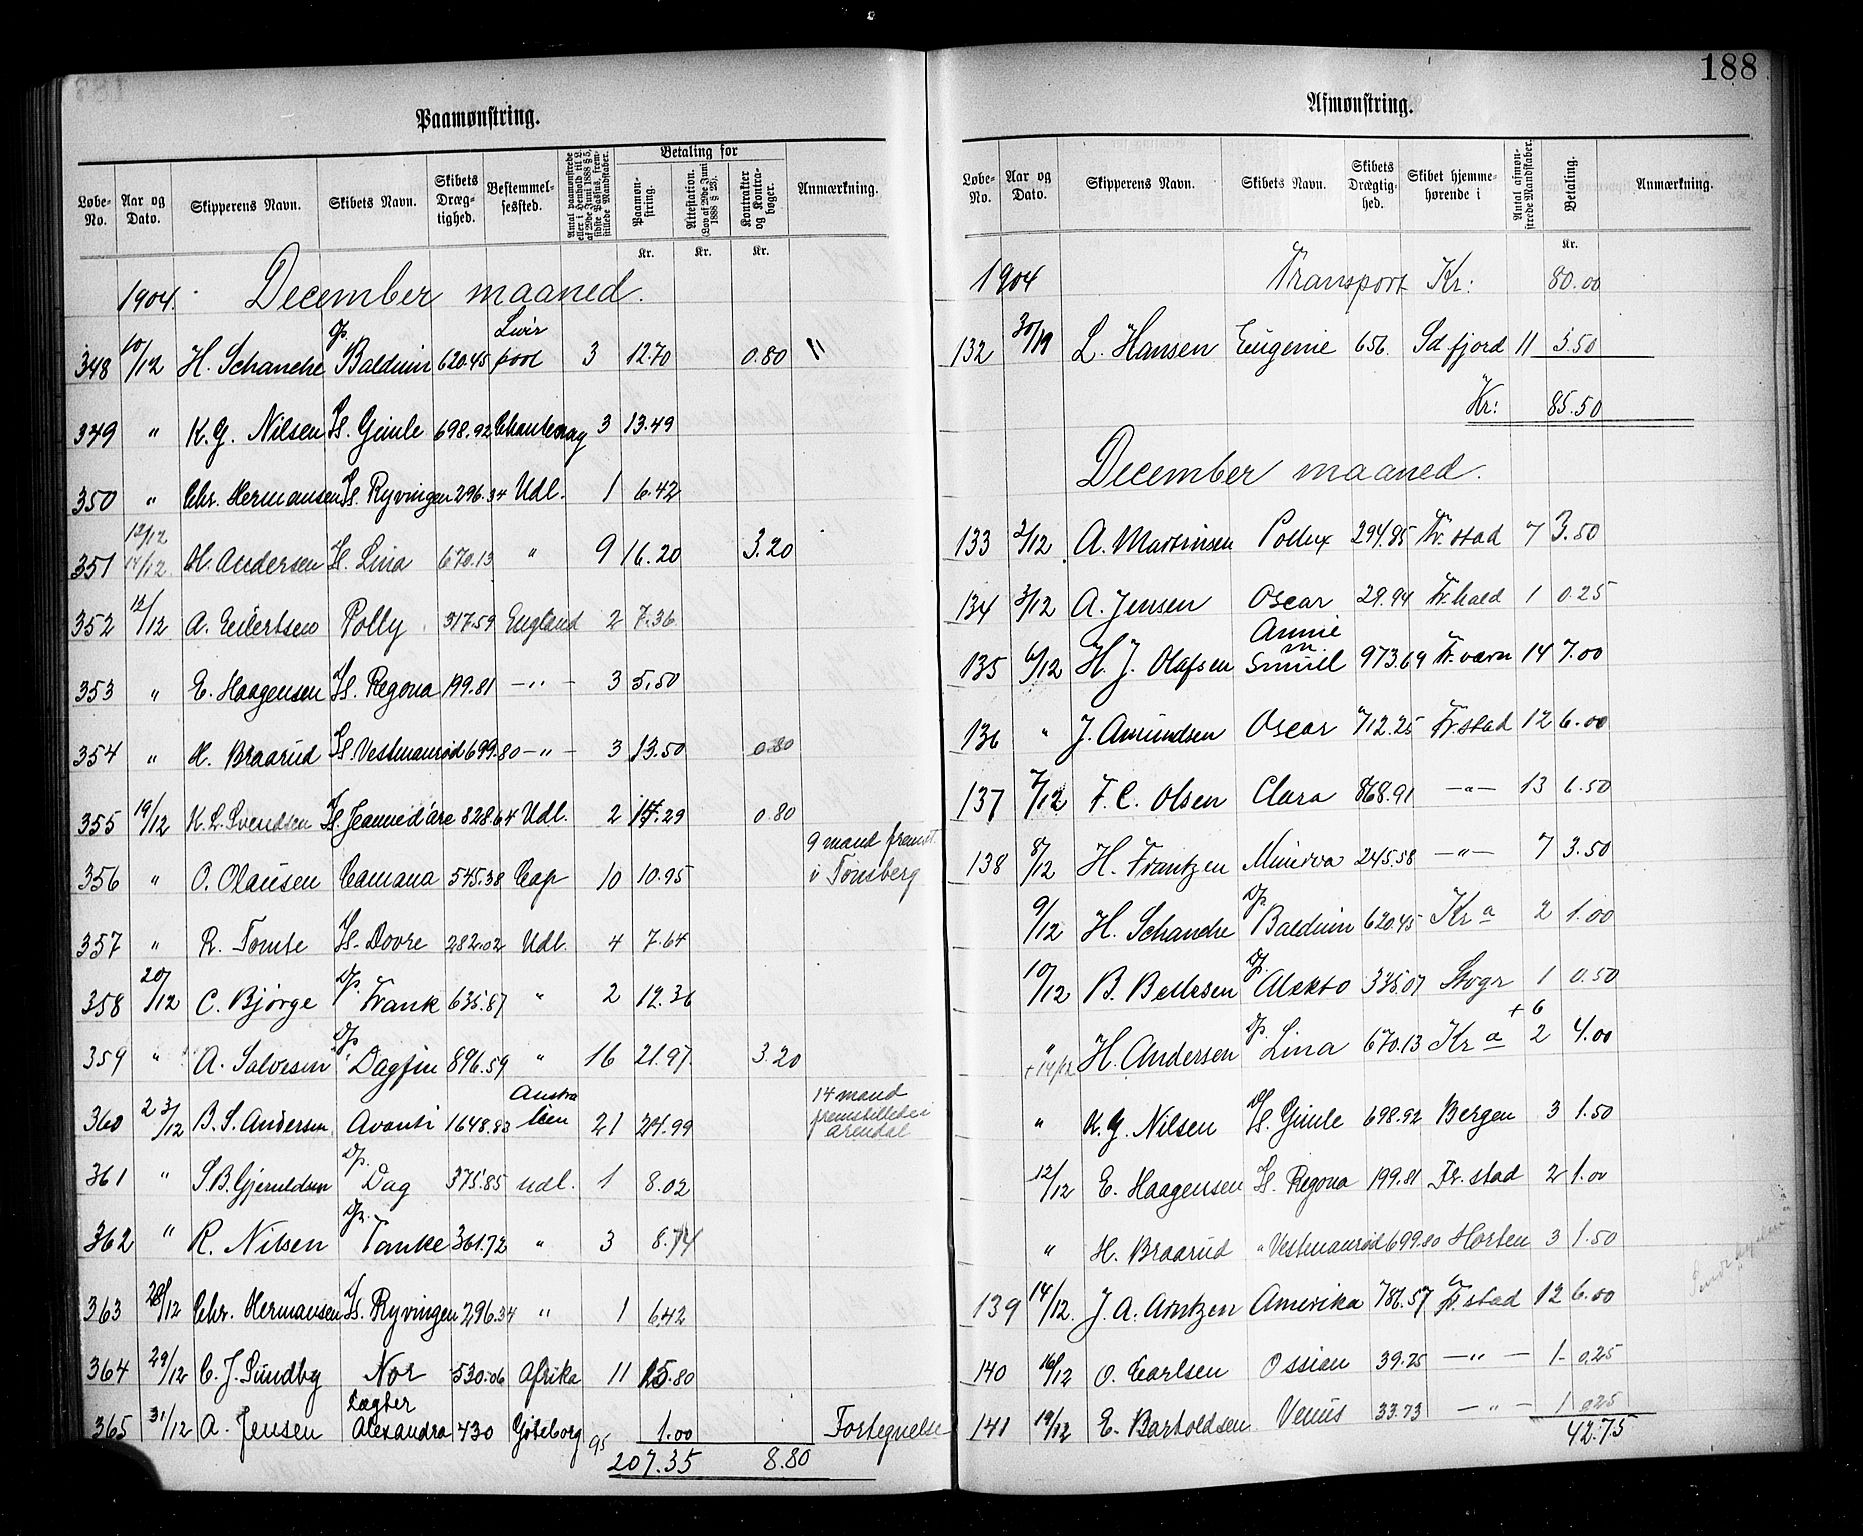 188
Paamønstring.
Løbe-No. Aar og Dato. Skipperens Navn. Skibets Navn. Skibets Dræg-tighed. Bestemmel-sessted. Antal paamønstrede eller i Henhold til L. af 29de Juni 1888 § 5, sidste Passus, frem-stillede Mandskaber. Betaling for Paamøn-string. Attestation. (Lov af 29de Juni 1888 § 26). Kontrakter og Kontra-bøger. Anmærkning.
Kr. Kr. Kr.
1904. December maaned.
348 10/12 H. Schanche Dp. Balduin 620.45 Liverpool 3 12.70 0.80 "
349 " K. G. Nilsen Ds. Gimle 698.92 Chantenay 3 13.49
350 " Chr. Hermansen Ds. Ryvingen 296.34 Udl. 1 6.42
351 12/12 14/12 H. Andersen Ds. Lina 670.13 " 9 16.20 3.20
352 12/12 A. Eilertsen Polly 317.59 England 2 7.36
353 " E. Haagensen Ds. Regona 199.81 —"— 3 5.50
354 " H. Braarud Ds. Vestmanrød 699.80 —"— 3 13.50 0.80
355 19/12 K. L. Svendsen Ds. Jeanne d'arc 828.64 Udl. 2 14.29 0.80
356 " O. Olausen Camana 545.38 Cap 10 10.95 9 mand fremst. i Tønsberg
357 " R. Tomte Ds. Dovre 282.02 Udl. 4 7.64
358 20/12 C. Bjørge Dp. Frank 635.87 " 2 12.36
359 " A. Salvesen Dp. Dagfin 896.59 " 16 21.97. 3.20
360 23/12 B. S. Andersen Avanti 1648.83 Australien 21 24.99 14 mand fremstillede i Arendal
361 " S. B. Gjeruldsen Dp. Dag 375.85 Udl. 1 8.02
362 " R. Nilsen Dp. Tanke 361.72 " 3 8.74
363 28/12 Chr. Hermansen Ds. Ryvingen 296.34 " 1 6.42
364 29/12 C. J. Sundby Nor 530.06 Afrika 11 15.80
365 31/12 A. Jensen Lægter Alexandra 430 Göteborg 1.00 Fortegnelse
95 207.35 8.80
Afmønstring.
Løbe-No. Aar og Dato. Skipperens Navn. Skibets Navn. Skibets Drægtig-hed. Skibet hjemme-hørende i Antal afmøn-strede Mandskaber. Betaling. Anmærkning.
Kr.
1904 Transport Kr: 80.00
132 30/11 L. Hansen Eugenie 656. Sdfjord 11 5.50
Kr: 85.50
December maaned.
133 2/12 A. Martinsen Pollux 294.85 Fr.stad 7 3.50
134 3/12 A. Jensen Oscar 29.94 Fr.hald 1 0.25
135 6/12 H. J. Olafsen Annie m. Smuel 973.69 Fr.værn 14 7.00
136 " J. Amundsen Oscar 712.25 Fr.stad 12 6.00
137 7/12 F. C. Olsen Clara 868.91 —"— 13 6.50
138 8/12 H. Frantzen Minerva 245.58 —"— 7 3.50
9/12 H. Schanche Dp. Balduin 620.45 Kra 2 1.00
10/12 B. Bellesen Dp. Alekto 335.07 Stvgr 1 0.50
" + 14/12 H. Andersen Dp. Lina 670.13 Kra 2 + 6 4.00
" K. G. Nilsen Ds. Gimle 698.92 Bergen 3 1.50
12/12 E. Haagensen Ds. Regona 199.81 Fr.stad 2 1.00
" H. Braarud " Vestmanrød 699.80 Horten 3 1.50
139 14/12. J. A. Arntzen Amerika 786.57 Fr.stad 12 6.00
140 16/12 O. Carlsen Ossian 39.25 —"— 1 0.25
141 19/12 E. Bartholdsen Venus 33.73 —"— 1 0.25
42.75